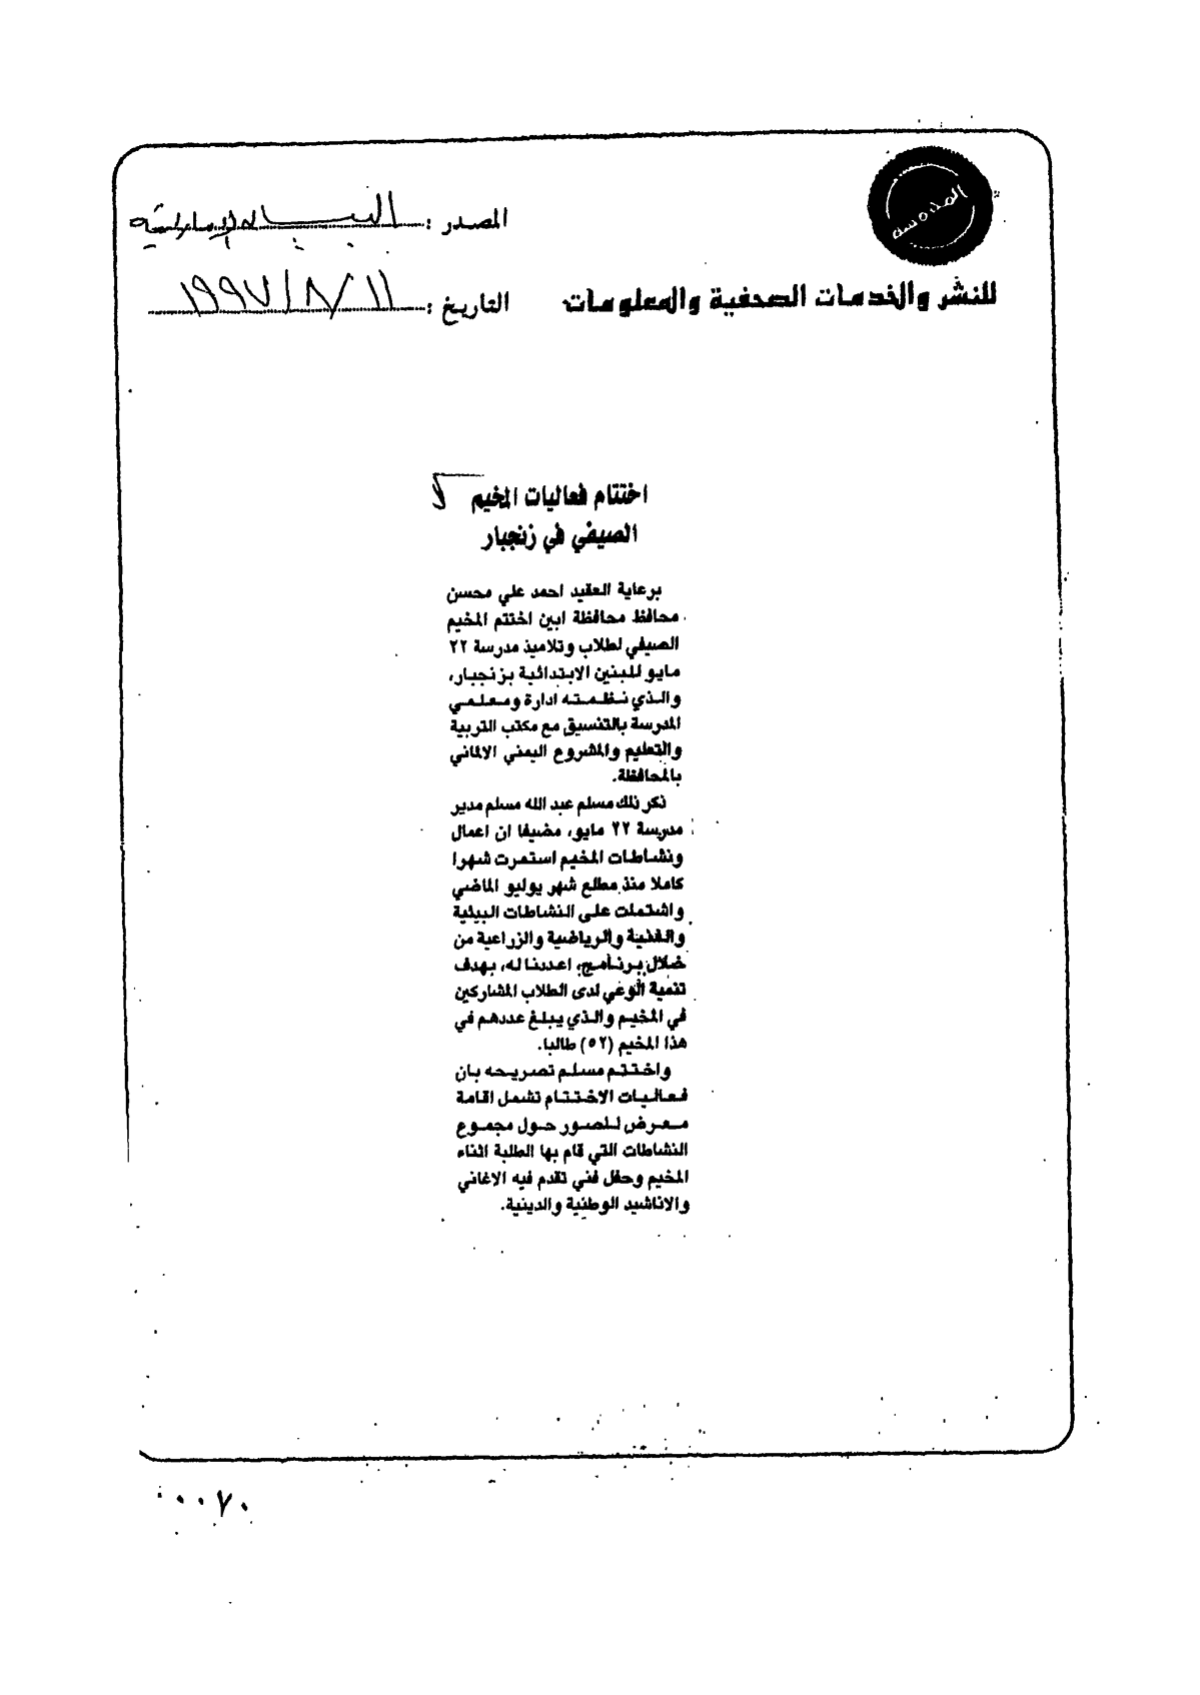 المصدر : البيان الإماراتية
للنشر والخدمات الصحفية والمعلومات
التاريخ : ١١/٨/١٩٩٧
اختتام فعاليات المخيم
الصيفي في زنجبار
برعاية العقيد احمد علي محسن
محافظ محافظة ابين اختتم المخيم
الصيفي لطلاب وتلاميذ مدرسة ٢٢
مايو للبنين الابتدائية بزنجبار،
والذي نظمته ادارة ومعلمي
المدرسة بالتنسيق مع مكتب التربية
والتعليم والمشروع اليمني الالماني
بالمحافظة.
ذكر ذلك مسلم عبد الله مسلم مدير
مدرسة ٢٢ مايو، مضيفا ان اعمال
ونشاطات المخيم استمرت شهرا
كاملا منذ مطلع شهر يوليو الماضي
واشتملت على النشاطات البيئية
والفنية والرياضية والزراعية من
خلال برنامج، اعددنا له، بهدف
تنمية الوعي لدى الطلاب المشاركين
في المخيم والذي يبلغ عددهم في
هذا المخيم (٥٢) طالبا.
واختتم مسلم تصريحه بان
فعاليات الاختتام تشمل اقامة
معرض للصور حول مجموع
النشاطات التي قام بها الطلبة اثناء
المخيم وحفل فني تقدم فيه الاغاني
والاناشيد الوطنية والدينية.
٠٠٧٠